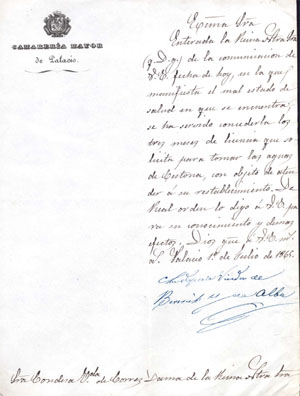 CAMARERÍA MAYOR
de Palacio.
Exma Sra
Enterada la Reina Ntra Sra
(q. D. g.) de la comunicacion de
V.E. fecha de hoy, en la que
manifiesta el mal estado de
salud en que se encuentra,
se ha servido concederla los
tres meses de licencia que so
licita para tomar las aguas
de Cestona, con objeto de aten
der á su restablecimiento. De
Real orden lo digo á V.E. pa
ra su conocimiento y demas
efectos. Dios gue á V.E. ms
as. Palacio 1º de Julio de 1865.
Viuda de
Berwick y de Alba
Sra Condesa Vda de Torres- Dama de la Reina Ntra Sra